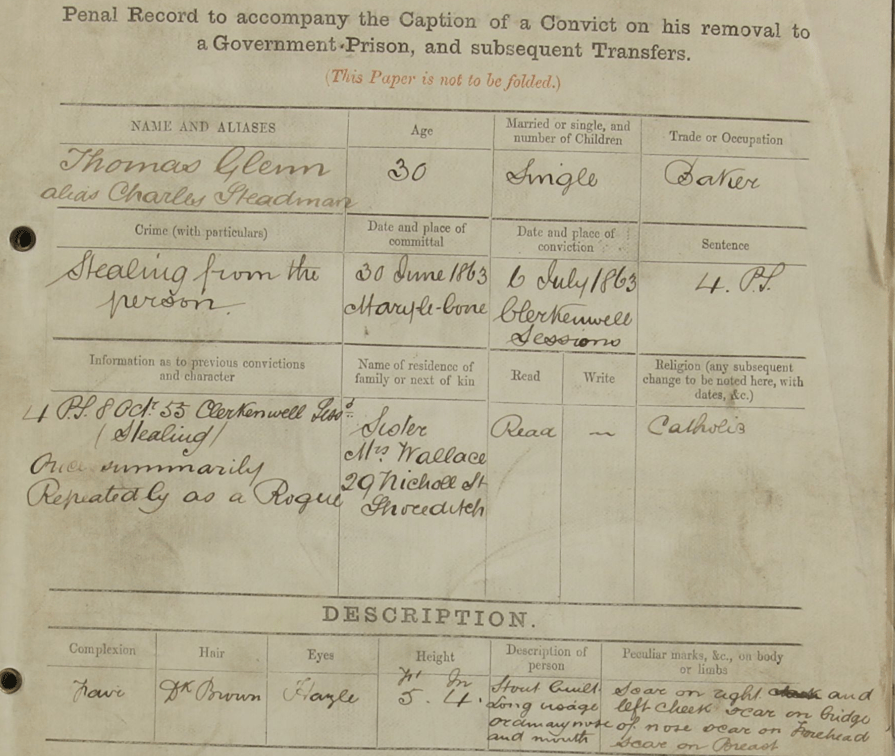 Penal Record to accompany the Caption of a Convict on his removal to
a Government Prison, and subsequent Transfers.
(This Paper is not to be folded.)
NAME AND ALIASES
Age
Married or single, and
number of Children
Trade or Occupation
Thomas Glenn
alias Charles Steadman
30
Single
Baker
Crime (with particulars)
Date and place of
committal
Date and place of
conviction
Sentence
Stealing from the
person.
30 June 1863
Maryle-bone
6 July 1863
Clerkenwell
Sessions
4. P.S.
Information as to previous convictions
and character
Name of residence of
family or next of kin
Read
Write
Religion (any subsequent
change to be noted here, with
dates, &c.)
4 P.S. 8 Octr. 55 Clerkenwell Sessd.
(Stealing)
Once summarily
Repeatedly as a Rogue
Sister
Mrs Wallace
29 Nicholl St
Shoreditch
Read
—
Catholic
DESCRIPTION.
Complexion
Hair
Eyes
Height
Description of
person
Peculiar marks, &c., on body
or limbs
Fair
Dk Brown
Hazle
Ft In
5. 4.
Stout built
Long visage
ordinary nose
and mouth
Scar on right and
left cheek scar on bridge
of nose scar on Forehead
Scar on Breast